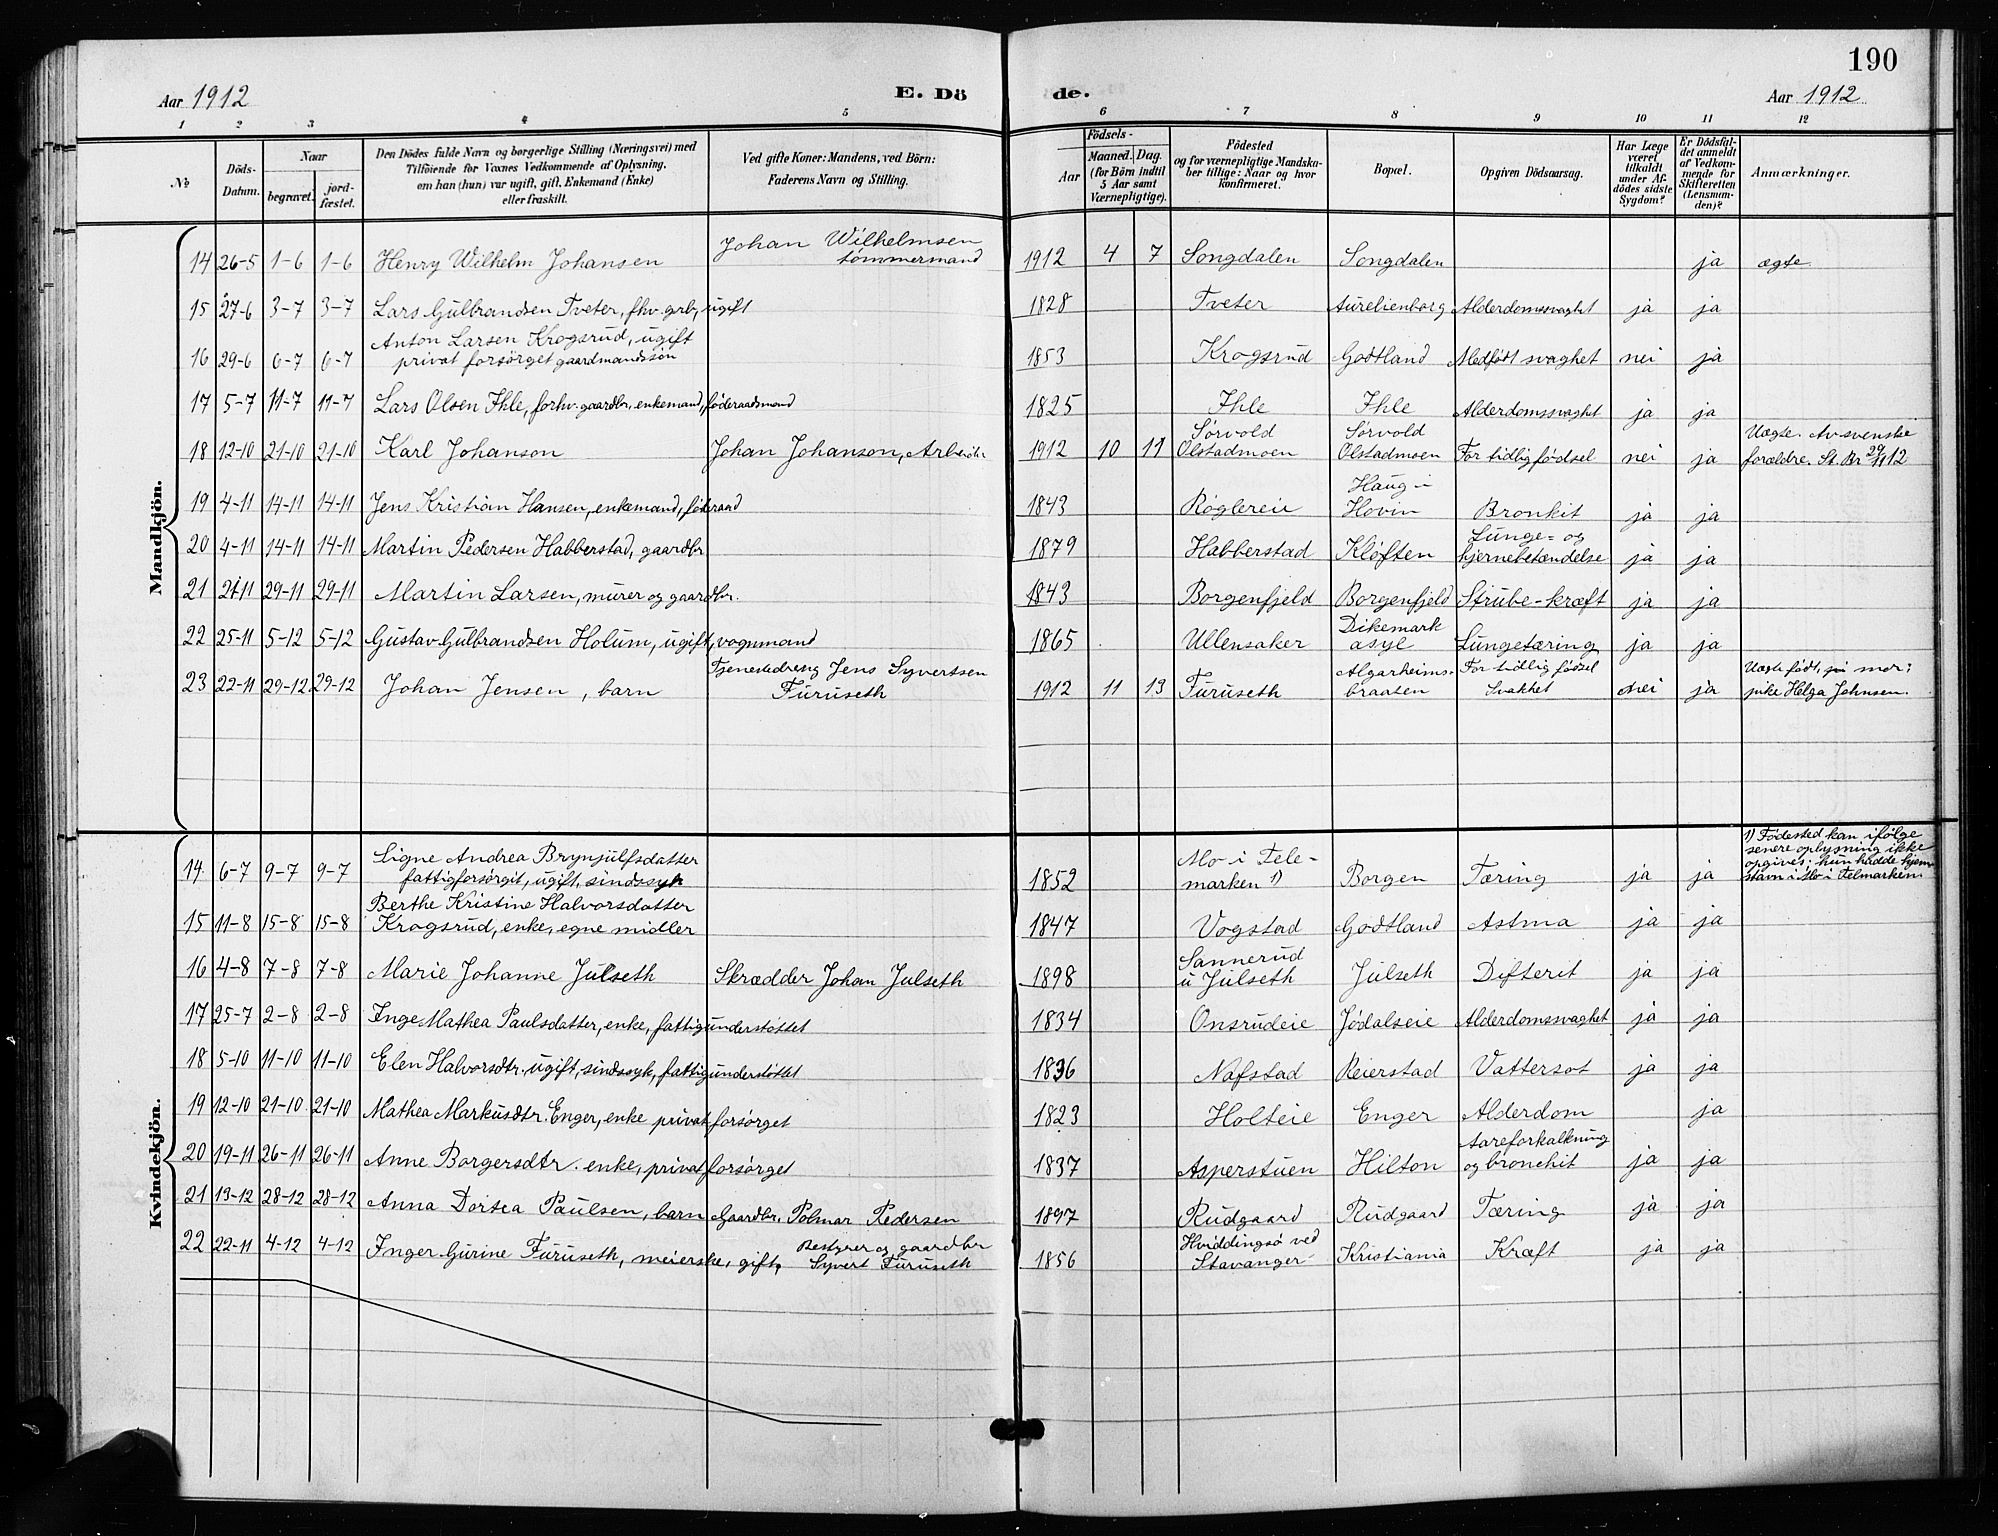 190
Aar 1912
E. Dö
de.
Aar 1912
1 2 3 4 5 6 7 8 9 10 11 12
No
Döds-
Datum.
Naar
begravet.
jord-
fæstet.
Den Dödes fulde Navn og borgerlige Stilling (Næringsvei) med
Tilföiende for Voxnes Vedkommende af Oplysning,
om han (hun) var ugift, gift, Enkemand (Enke)
eller fraskilt.
Ved gifte Koner: Mandens, ved Börn:
Faderens Navn og Stilling.
Födsels-
Aar
Maaned. Dag.
(for Börn indtil
5 Aar samt
Værnepligtige).
Födested
og for værnepligtige Mandska-
ber tillige: Naar og hvor
konfirmeret.
Bopæl.
Opgiven Dödsaarsag.
Har Læge
været
tilkaldt
under Af-
dödes sidste
Sygdom?
Er Dödsfal-
det anmeldt
af Vedkom-
mende for
Skifteretten
(Lensman-
den)?
Anmærkninger.
Mandkjön.
14 26-5 1-6 1-6 Henry Wilhelm Johansen Johan Wilhelmsen
tömmermand 1912 4 7 Songdalen Songdalen ja ægte
15 27-6 3-7 3-7 Lars Gulbrandsen Tveter, fhv. grbr, ugift 1828 Tveter Aurelienborg Alderdomssvaghet ja ja
16 29-6 6-7 6-7 Anton Larsen Krogsrud, ugift
privat forsørget gaardmandssøn 1853 Krogsrud Godtland Medfødt svaghet nei ja
17 5-7 11-7 11-7 Lars Olsen Ihle, forhv. gaardbr, enkemand, føderaadsmand 1825 Ihle Ihle Alderdomssvaghet ja ja
18 12-10 21-10 21-10 Karl Johanson Johan Johanson, Arbeider 1912 10 11 Sørvold
Olstadmoen Sørvold
Olstadmoen For tidlig fødsel nei ja Uægte. Av svenske
forældre. St. Br 29/11 12
19 4-11 14-11 14-11 Jens Kristian Hansen, enkemand, føderaad 1843 Røglereie Haug-
Hovin Bronkit ja ja
20 4-11 14-11 14-11 Martin Pedersen Habberstad, gaardbr 1879 Habberstad Kløften Lunge- og
hjernebetændelse ja ja
21 21-11 29-11 29-11 Martin Larsen, murer og gaardbr. 1843 Borgenfjeld Borgenfjeld Strube-kræft ja ja
22 25-11 5-12 5-12 Gustav Gulbrandsen Holum, ugift, vognmand 1865 Ullensaker Dikemark
asyl Lungetæring ja ja
23 22-11 29-12 29-12 Johan Jensen, barn Tjenestedreng Jens Syvertsen
Furuseth 1912 11 13 Furuseth Algarheims-
braaten For tidlig fødsel
Svakhet nei ja Uægte født, mor:
pike Helga Johnsen.
Kvindekjön.
14 6-7 9-7 9-7 Signe Andrea Brynjulfsdatter
fattigforsørget, ugift, sindssyk 1852 Mo i Tele-
marken 1) Borgen Tæring ja ja 1) Fødested kan ifølge
senere oplysning ikke
opgives; hun hadde hjem-
stavn i Mo i Telmarken.
15 11-8 15-8 15-8 Berthe Kristine Halvorsdatter
Krogsrud, enke, egne midler 1847 Vogstad Godtland Astma ja ja
16 4-8 7-8 7-8 Marie Johanne Julseth Skrædder Johan Julseth 1898 Sannerud
u Julseth Julseth Difterit ja ja
17 25-7 2-8 2-8 Inge Mathea Paulsdatter, enke, fattigunderstøttet 1834 Onsrudeie Jødalseie Alderdomssvaghet ja ja
18 5-10 11-10 11-10 Elen Halvorsdtr. ugift, sindssyk, fattigunderstøttet 1836 Nafstad Reierstad Vattersot ja ja
19 12-10 21-10 21-10 Mathea Markusdtr. Enger, enke privat forsørget 1823 Holteie Enger Alderdom ja
20 19-11 26-11 26-11 Anne Borgersdtr. enke, privat forsørget 1837 Asperstuen Hilton Aareforkalkning
og bronchit ja ja
21 13-12 28-12 28-12 Anna Dortea Paulsen, barn Gaardbr. Polmar Pedersen 1897 Rudgaard Rudgaard Tæring ja ja
22 22-11 4-12 4-12 Inger Gurine Furuseth, meierske, gift, Bestyrer og gaardbr
Syvert Furuseth 1856 Hviddingsø ved
Stavanger Kristiania Kræft ja ja